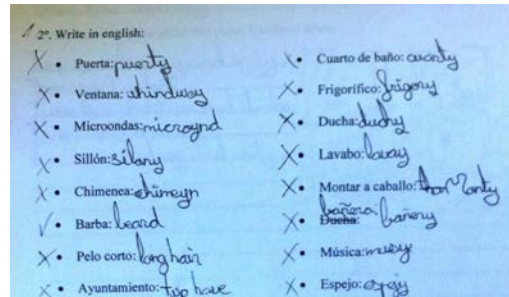 2º. Write in english:
• Puerta: puerty
• Ventana: whindway
• Microondas: microynd
• Sillón: sillany
• Chimenea: chimeyn
• Barba: beard
• Pelo corto: long hair
• Ayuntamiento: have
• Cuarto de baño: cuarty
• Frigorífico: frigory
• Ducha: duchy
• Lavabo: lavay
• Montar a caballo:
bañera:
• Ducha: bañery
• Música: musy
• Espejo: espejy